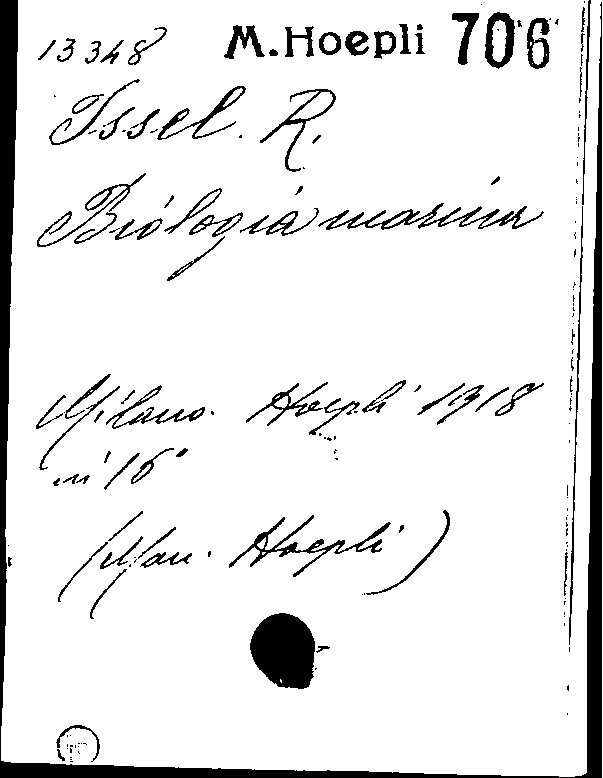 13348 M. Hoepli 706
Issel. R.
Biologia marina
Milano. Hoepli 1918
in 16°
(Man. Hoepli)